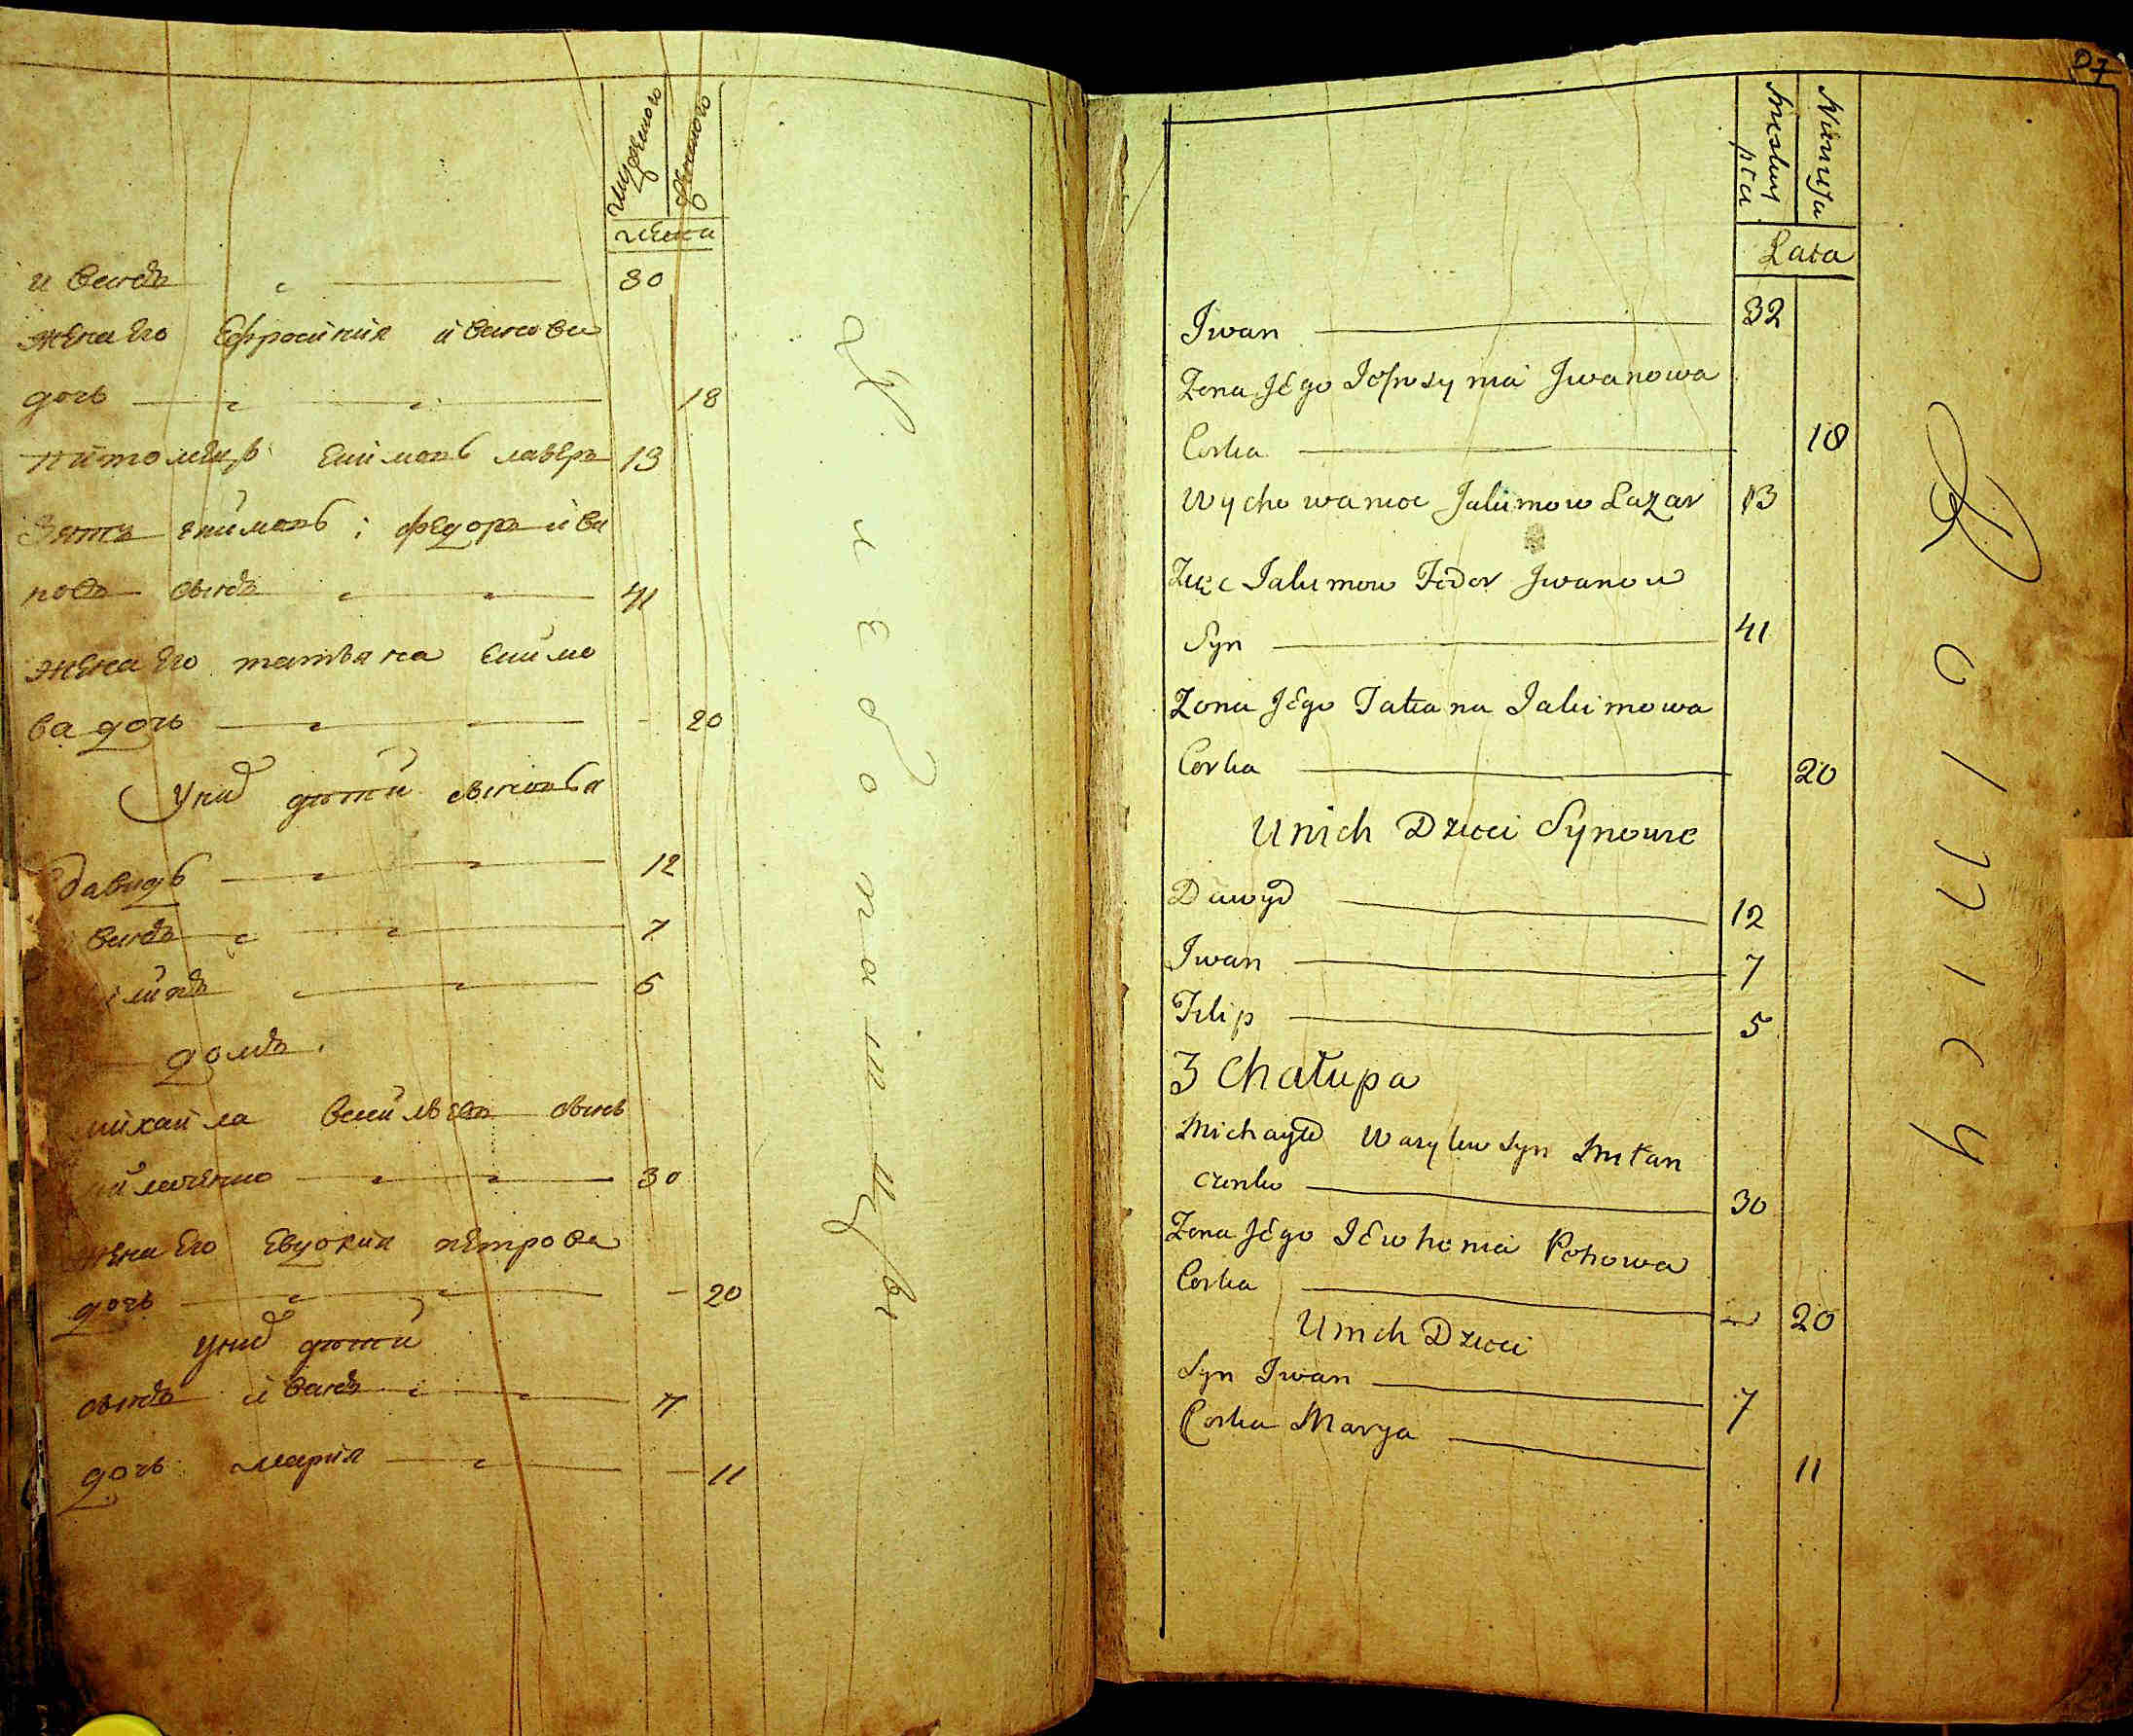 мужеского
женского
лѣта
иванъ 30
жена его Ефросиния иванова
дочь 18
питомецъ Екимовъ лазеръ 13
Зять екимовъ: федоръ ива
новъ сынъ 41
жена его татьяна Екимо
ва дочь 20
У них дѣти сыновья
давидъ 12
иванъ 7
филипъ 5
домъ.
михайла васильевъ сынъ
миланченко 30
жена его Евдокия петрова
дочь 20
у них дѣти
сынъ иванъ 7
дочь мария 11
Хлеборобцы
Męskiey
płci
Niewiesta
Lata
Iwan 32
Zona Jego Jofrosynia Iwanowa
Corka 18
Wychowaniec Jakimow Lazar 13
Zięć Jakimow Fedor Iwanow
Syn 41
Zona Jego Tatiana Jakimowa
Corka 20
U nich Dzieci Synowie
Dawyd 12
Iwan 7
Filip 5
3 Chałupa
Michayło Wasylew Syn Miłan
czenko 30
Zona Jego Jewhenia Petrowa
Corka 20
U nich Dzieci
Syn Iwan 7
Corka Marya 11
Rolnicy